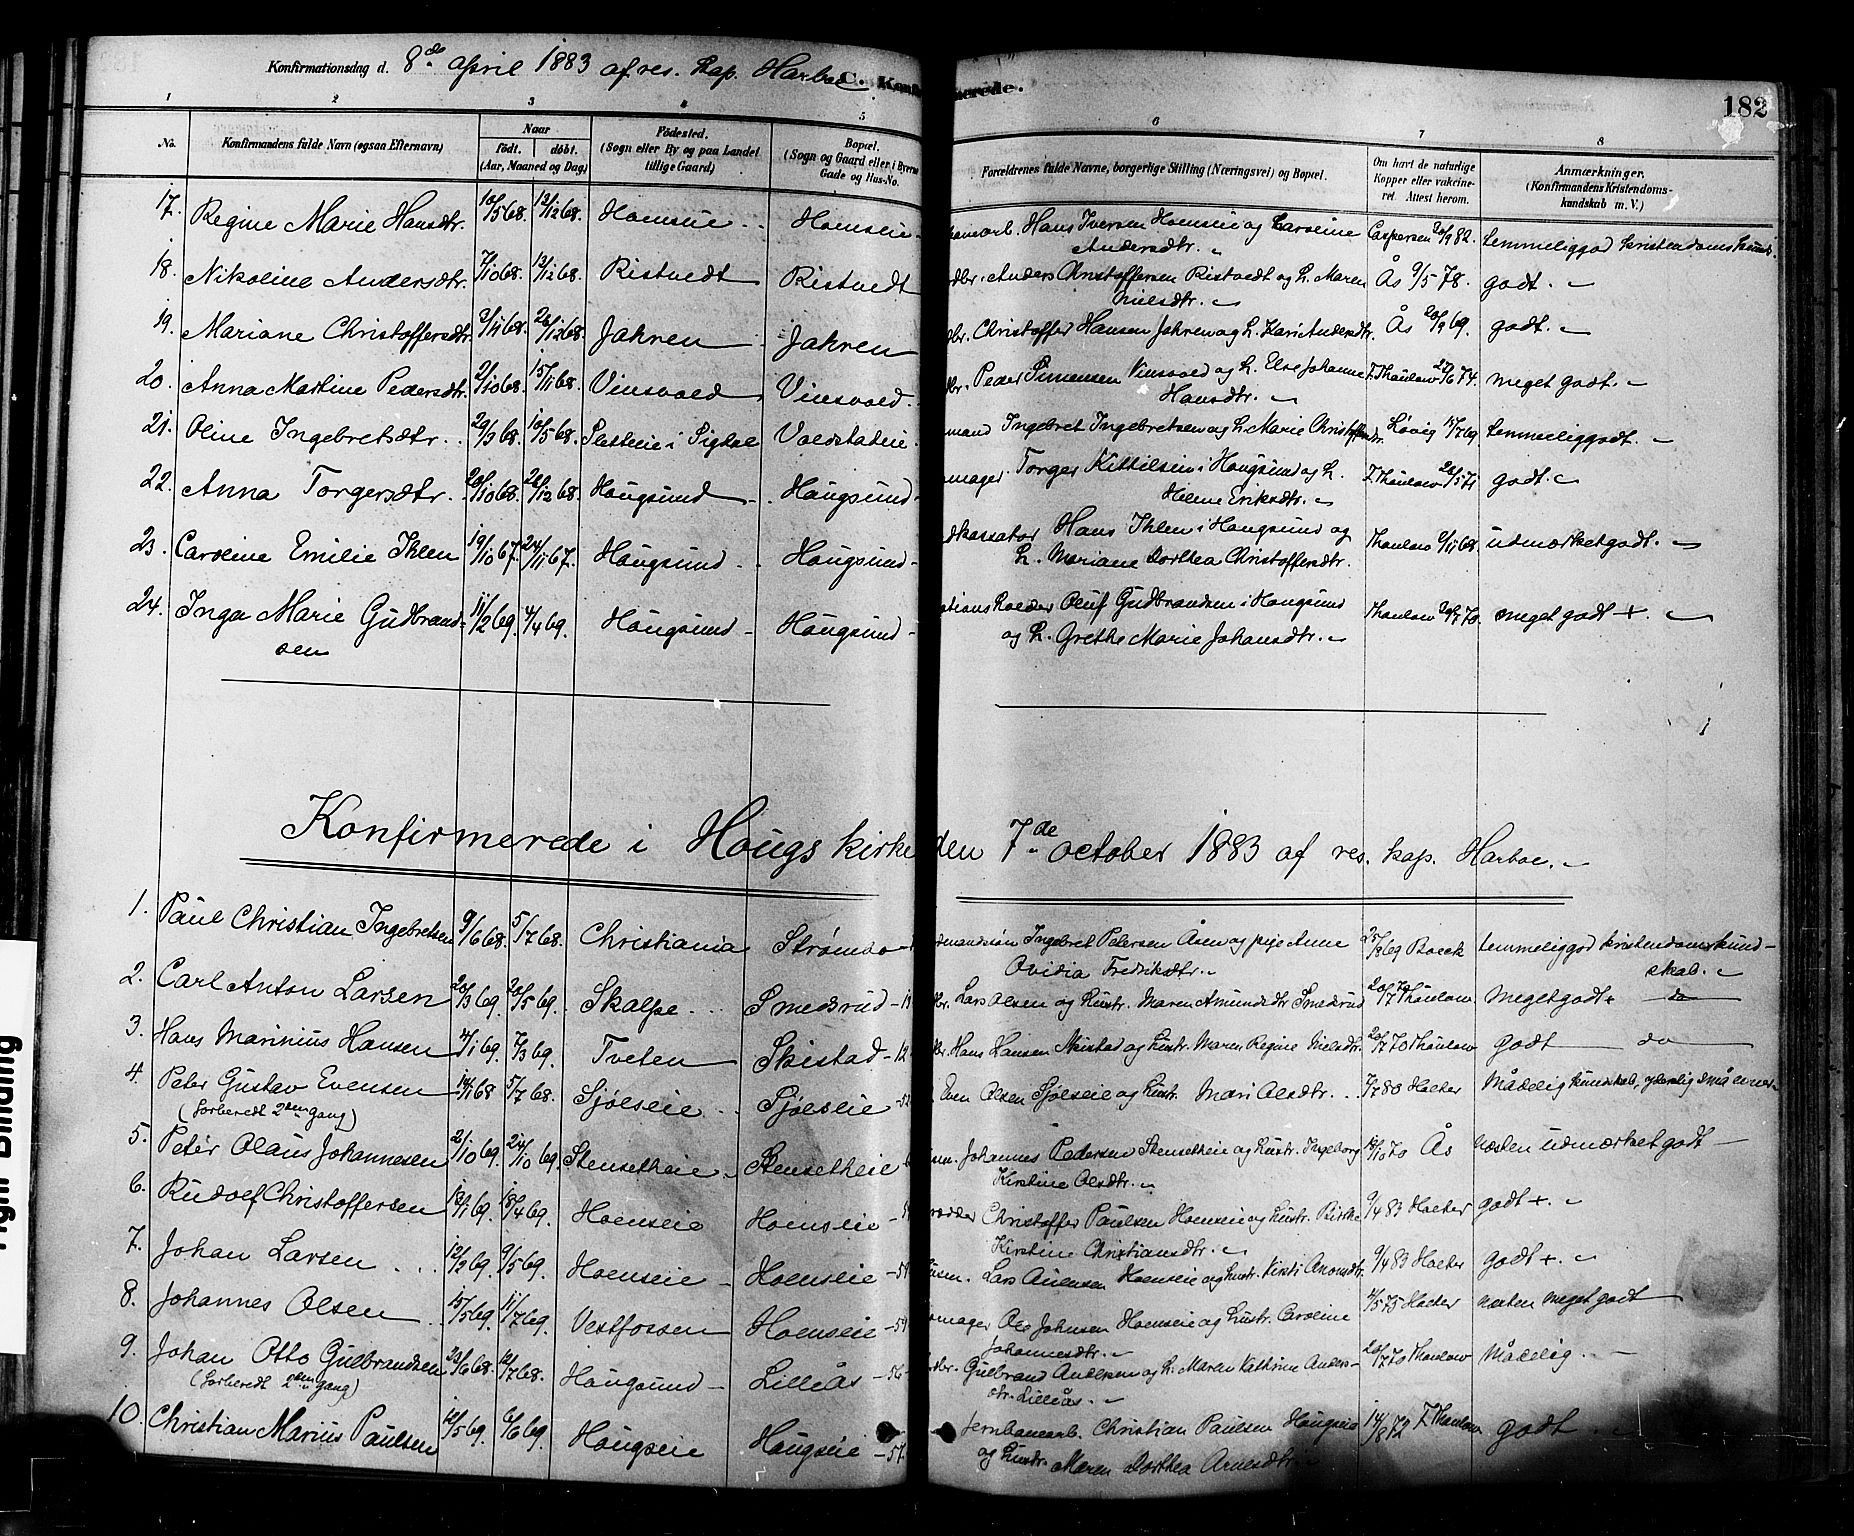 Konfirmationsdag d. 8de april 1883 af res. kap. Harboe C. Konfirmerede. 182
1 2 3 4 5 6 7 8
No. Konfirmandens fulde Navn (ogsaa Efternavn) Naar født. døbt. (Aar, Maaned og Dag) Födested. (Sogn eller By og paa Landet tillige Gaard) Bopæl. (Sogn og Gaard eller i Byerne Gade og Hus-No. Forældrenes fulde Navne, borgerlige Stilling (Næringsvei) og Bopæl. Om havt de naturlige Kopper eller vakcineret. Attest herom. Anmærkninger. (Konfirmandens Kristendomskundskab m. V.)
17. Regine Marie Hansdtr. 10/5 68. 13/12 68. Hoenseie Hoenseie Hans Iversen Hoenseie og Karoline Caspersen 20/9 82. temmeliggod kristendomskundsk.
Andersdtr.
18. Nikoline Andersdtr. 7/10 68. 13/12 68. Ristvedt Ristvedt Anders Christoffersen Ristvedt og h. Maren Ås 9/5 78. godt.
Nilsdtr.
19. Mariane Christoffersdtr. 2/11 68. 26/12 68. Jahren Jahren Christoffer Hansen Jahren og h. Kari Andersdtr. Ås 20/9 69. godt.
20. Anna Martine Pedersdtr. 2/10 68. 15/11 68. Vinsvold Vinsvold. Peder Simensen Vinsvold og h. Else Johanne F. Thaulow 27/6 74. meget godt.
Hansdtr.
21. Oline Ingebretsdtr. 29/3 68. 10/5 68. i Sigdal Ingebret Ingebretsen og h. Marie Christoffersdtr. Løvig 17/7 69 temmeliggodt.
22. Anna Torgersdtr. 20/10 68. 26/12 68. Hougsund Hougsund Torger Kittilsen i Hougsund og h. F. Thaulow 26/5 71 godt.
Helene Eriksdtr.
23. Caroline Emilie Ihlen 19/10 67. 24/11 67. Hougsund Hougsund Hans Ihlen i Hougsund og Thaulow 9/11 68. udmærket godt.
h. Mariane Dorthea Christoffersdtr.
24. Inga Marie Gudbrand- 11/2 69. 4/4 69. Hougsund Hougsund Oluf Gudbrandsen i Hougsund Thaulow 20/7 70. meget godt +.
sen og h. Grethe Marie Johansdtr.
Konfirmerede i Hougs kirke den 7de october 1883 af res. kap. Harboe.
1. Paul Christian Ingebretsen 9/6 68. 5/7 68. Christiania Strømbo Ingebret Petersen Åsen og pige Anne 27/8 69 Boeck temmeliggod kristendomskund-
Ovidia Fredriksdtr. skab.
2. Carl Anton Larsen 20/3 69. 20/5 69. Skalpe Smedsrud Lars Olsen og hustr. Maren Amundsdtr Smedsrud 20/7 70 Thaulow meget godt + do
3. Hans Marinius Hansen 4/1 69. 7/3 69. Tveten Skistad Hans Hansen Skistad og hustr. Maren Regine Nielsdtr. 20/7 70 Thaulow godt do
4. Peter Gustav Evensen 14/1 68 5/7 68. Sjølseie Sjølseie Even Olsen Sjølseie og hustr. Mari Olsdtr. 7/7 80 Holter Mådelig kundskab, yderlig små evner
(forberedt 2den gang)
5. Peter Olaus Johannesen 2/10 69. 24/10 69. Stensetheie Stensetheie Johannes Pedersen Stensetheie og hustr. Ingeborg 18/10 70 Ås næsten udmærket godt
Kirstine Olsdtr.
6. Rudolf Christoffersen 13/1 69. 18/4 69. Hoenseie Hoenseie Christoffer Paulsen Hoenseie og hustr. Birthe 9/4 83 Holter godt +.
Kirstine Christiansdtr.
7. Johan Larsen 12/2 69. 9/5 69. Hoenseie Hoenseie Lars Hoenseie og hustr. Kirsti 9/4 83 Holter godt +.
8. Johannes Olsen 15/5 69. 11/7 69. Vestfossen Hoenseie Ole Johnsen Hoenseie og hustr. Caroline 4/5 75 Holter næsten meget godt
Johannesdtr.
9. Johan Otto Gulbrandsen 23/6 68. 12/7 68. Hougsund Lilleås - 56 Gulbrand Andersen og h. Maren Kathrine Anders- 20/7 70 Thaulow Mådelig.
(forberedt 2den gang) dtr. Lilleås.
10. Christian Marius Paulsen 12/5 69. 6/6 69. Hougseie Hougseie - 57. Jernbanearb. Christian Paulsen Hougseie 14/8 72 F. Thaulow godt
og hustr. Maren Dorthea Arnesdtr.